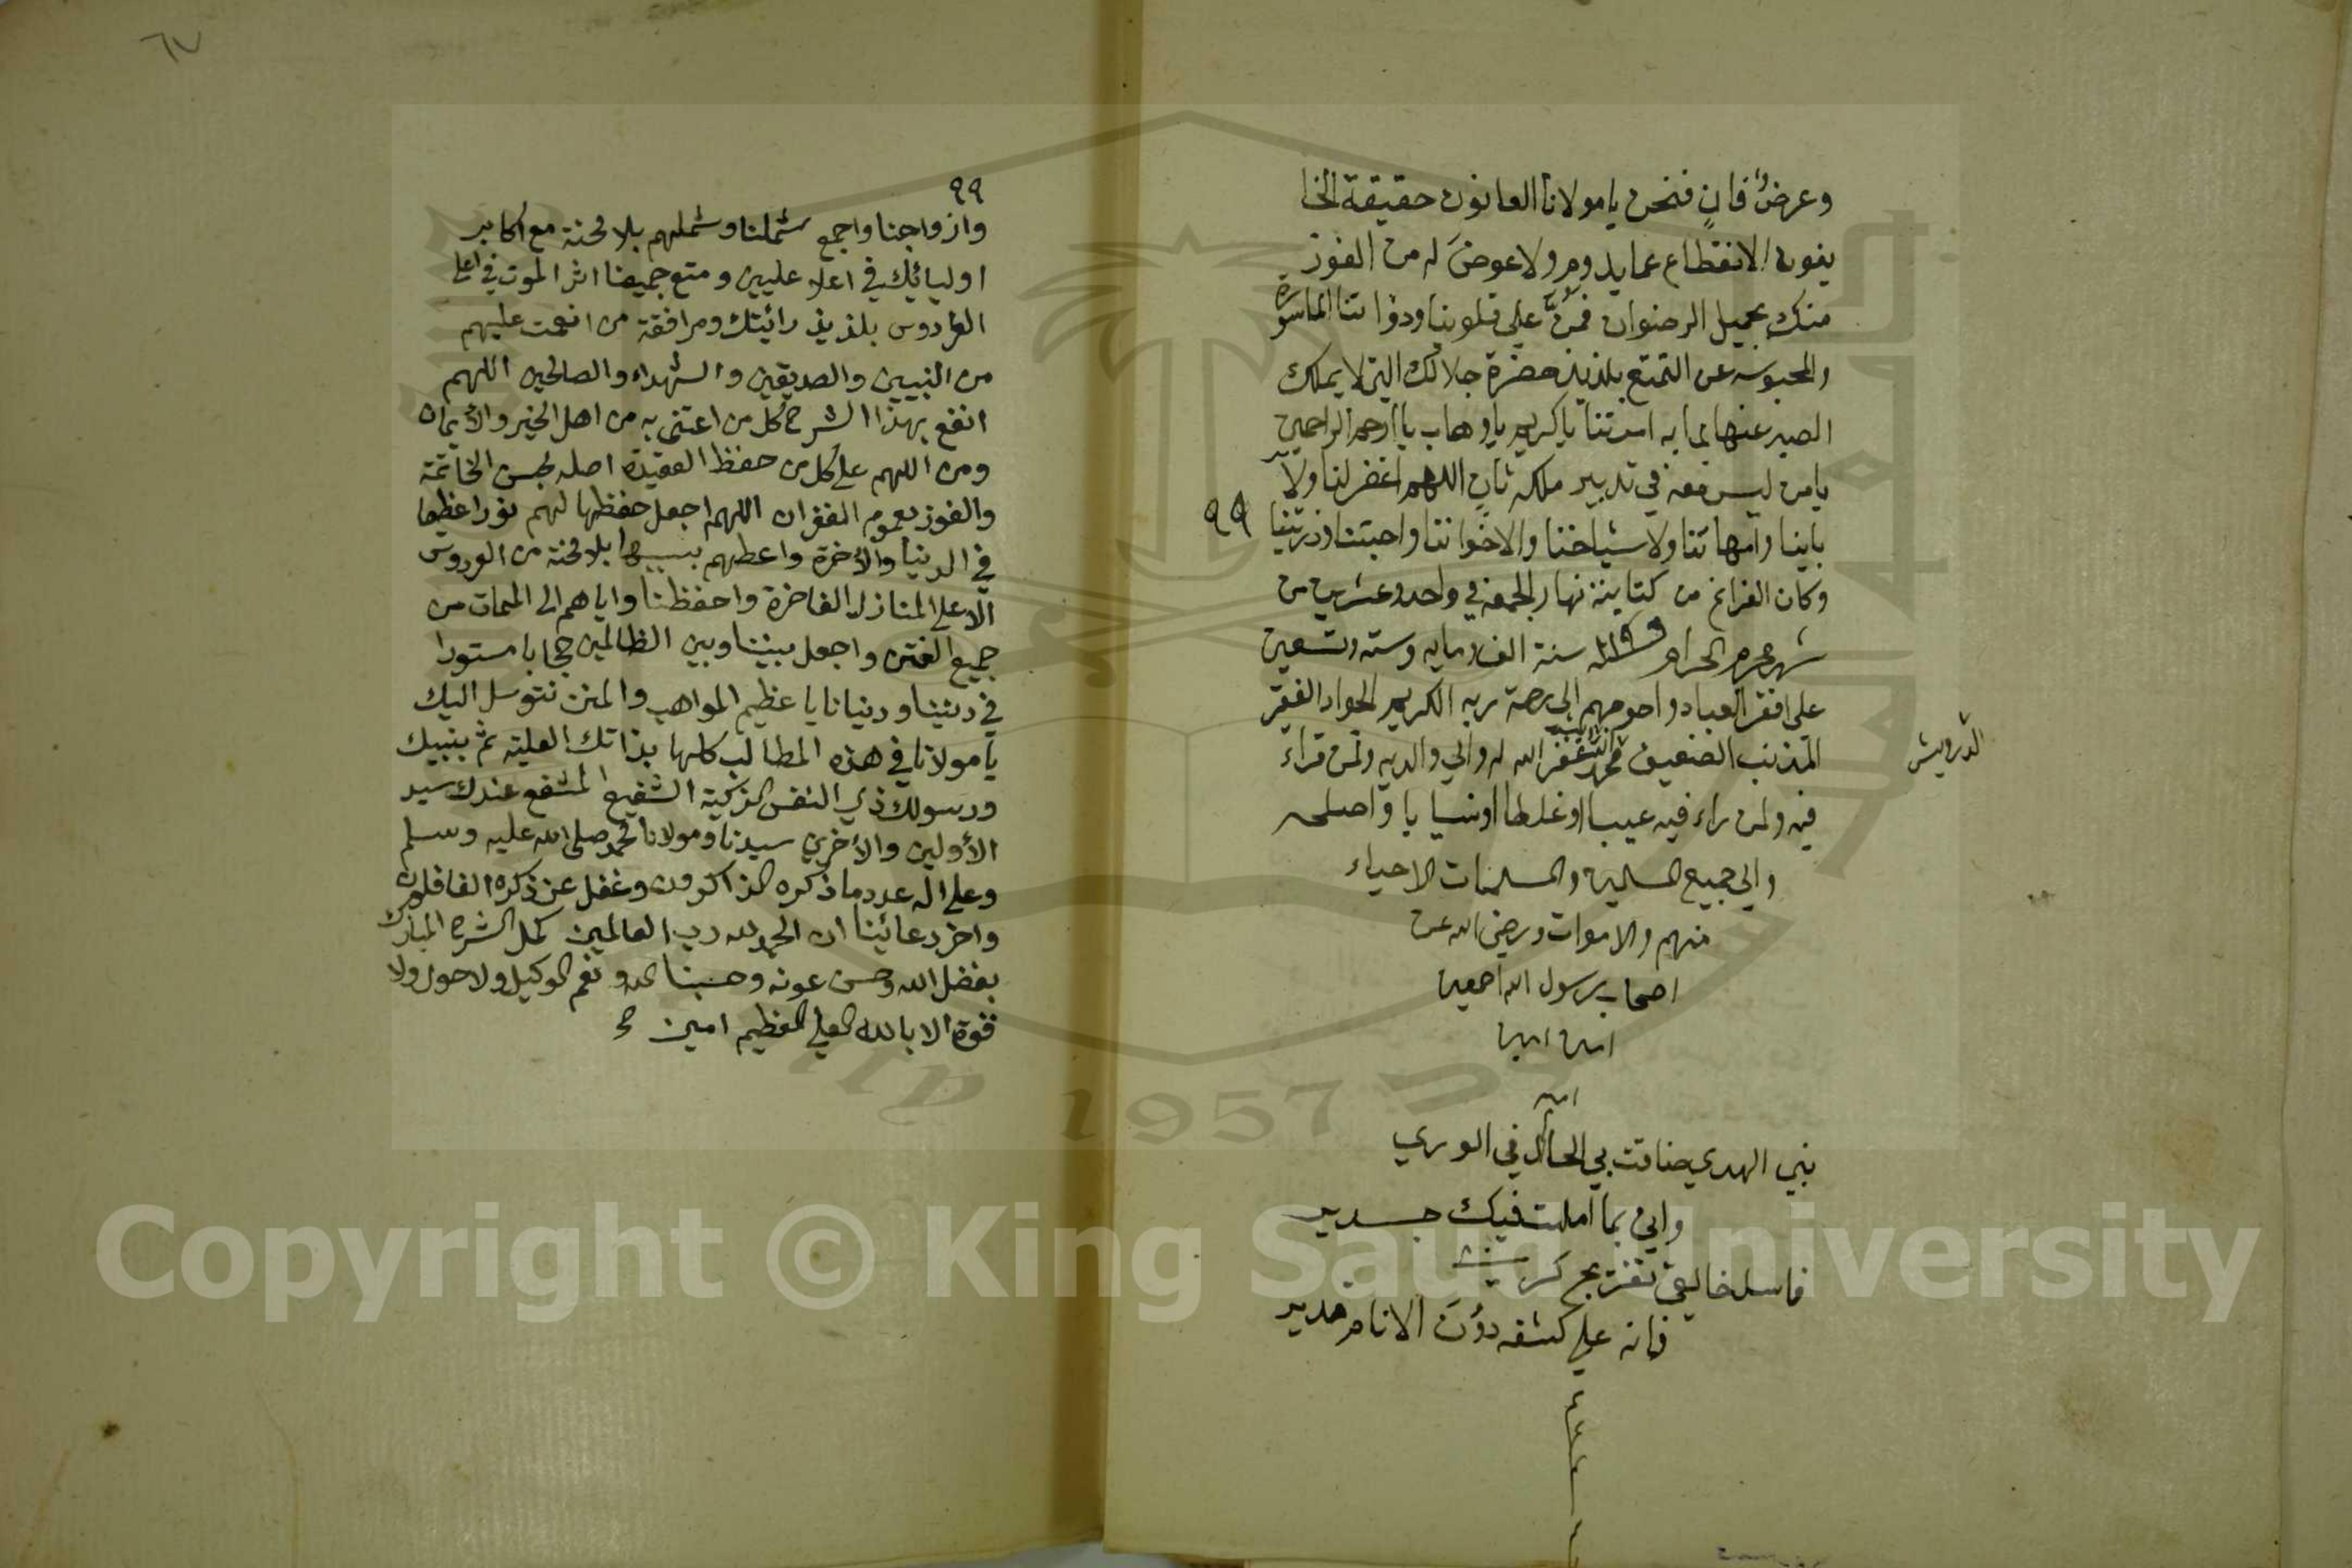 وعرضٌ فانٍ فنحن يا مولانا العانون حقيقة الخا
يفون الانقطاع عما يدوم ولا عوضَ له من الفوز
منك بجميل الرضوان فمنَّ علي قلوبنا وذواتنا الماسورة
والمحبوسه عن التمتع بلذيذ حضرة جلالك التي لا يملك
الصبر عنها لما به امرتنا يا كريم يا وهاب يا ارحم الراحمين
يا من ليس معه في تدبير ملكه ثانٍ اللهم اغفر لنا ولآ
باينا وامهاتنا ولاشياخنا والاخواننا واحبتنا وذريتنا
٩٩
وكان الفراغ من كتابته نهار الجمعه في واحد وعشرين من
شهر محرم الحرام سنة الف ومايه وسته وتسعين
علي افقر العباد واحوجهم الي رحمة ربه الكريم الجواد الفقير
المذنب الضعيف محمد غفر الله له والي والديه ولمن قراء
الدرويش
فيه ولمن راء فيه عيبا او غلطا او نسيا يا واصلحه
والي جميع المسلمين والمسلمات الاحياء
منهم والاموات ورضي الله عن
اصحاب رسول الله اجمعين
امين امين
امين
نبي الهدي ضاقت بي الحال في الوري
واني بما املت فيك جدير
فاسل خالقي تفريج كربتي
فانه علي كشفه دون الانام قدير
٦٧
٩٩
وازواجنا واجمع شملنا وشملهم بلا محنة مع اكابر
اوليائك في اعلا عليين ومتع جميعنا اثر الموت في اعلي
الفردوس بلذيذ رائيتك ومرافقة من انعمت عليهم
من النبيين والصديقين والشهداء والصالحين اللهم
انفع بهذا الشرح كل من اعتني به من اهل الخير والايمان
ومن اللهم علي كل من حفظ العقيدة اصله بحسن الخاتمة
والفوز بعموم الغفران اللهم اجعل حفظها لهم نورا عظيما
في الدنيا والاخرة واعطهم بسببها بلا محنة من الفردوس
الاعلي المنازل الفاخرة واحفظنا واياهم الي الممات من
جميع الفتن واجعل بيننا وبين الظالمين حجابا مستورا
في ديننا ودنيانا يا عظيم المواهب والمنن نتوسل اليك
يا مولانا في هذه المطالب كلها بذاتك العلية ثم بنبيك
ورسولك ذي النفس الزكية الشفيع المشفع عندك سيد
الأولين والأخرين سيدنا ومولانا محمد صلي الله عليه وسلم
وعلي اله عدد ما ذكره الذاكرون وغفل عن ذكره الغافلون
واخر دعائنا ان الحمد لله رب العالمين كمل الشرح المبارك
بفضل الله وحسن عونه وحسبنا الله ونعم الوكيل ولا حول ولا
قوة الا بالله العلي العظيم امين
Copyright © King Saud University
1957